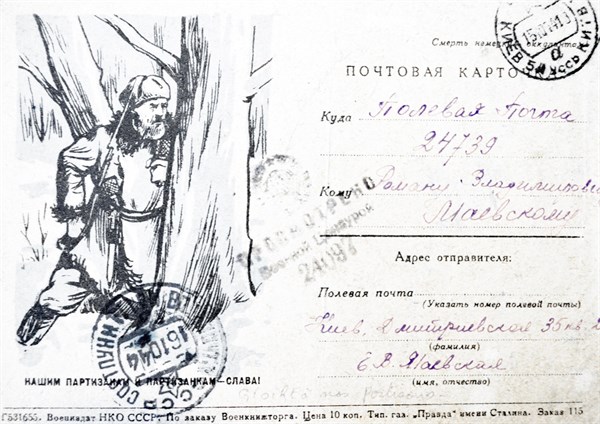 Смерть немецким оккупантам!
ПОЧТОВАЯ КАРТО
Куда Полевая Почта
24739
Кому Роману Владимировичу
Маевскому
ПРОСМОТРЕНО
Военной Цензурой
24097
КИЕВ УССР КИЇВ
Адрес отправителя:
Полевая почта
(Указать номер полевой почты)
Киев, Дмитриевская 35 кв.
(фамилия)
Е. В. Маевская
(имя, отчество)
НАШИМ ПАРТИЗАНАМ И ПАРТИЗАНКАМ—СЛАВА!
151044
СССР
Г531655. Воениздат НКО СССР. По заказу Военкнижторга. Цена 10 коп. Тип. газ. „Правда“ имени Сталина. Заказ 115